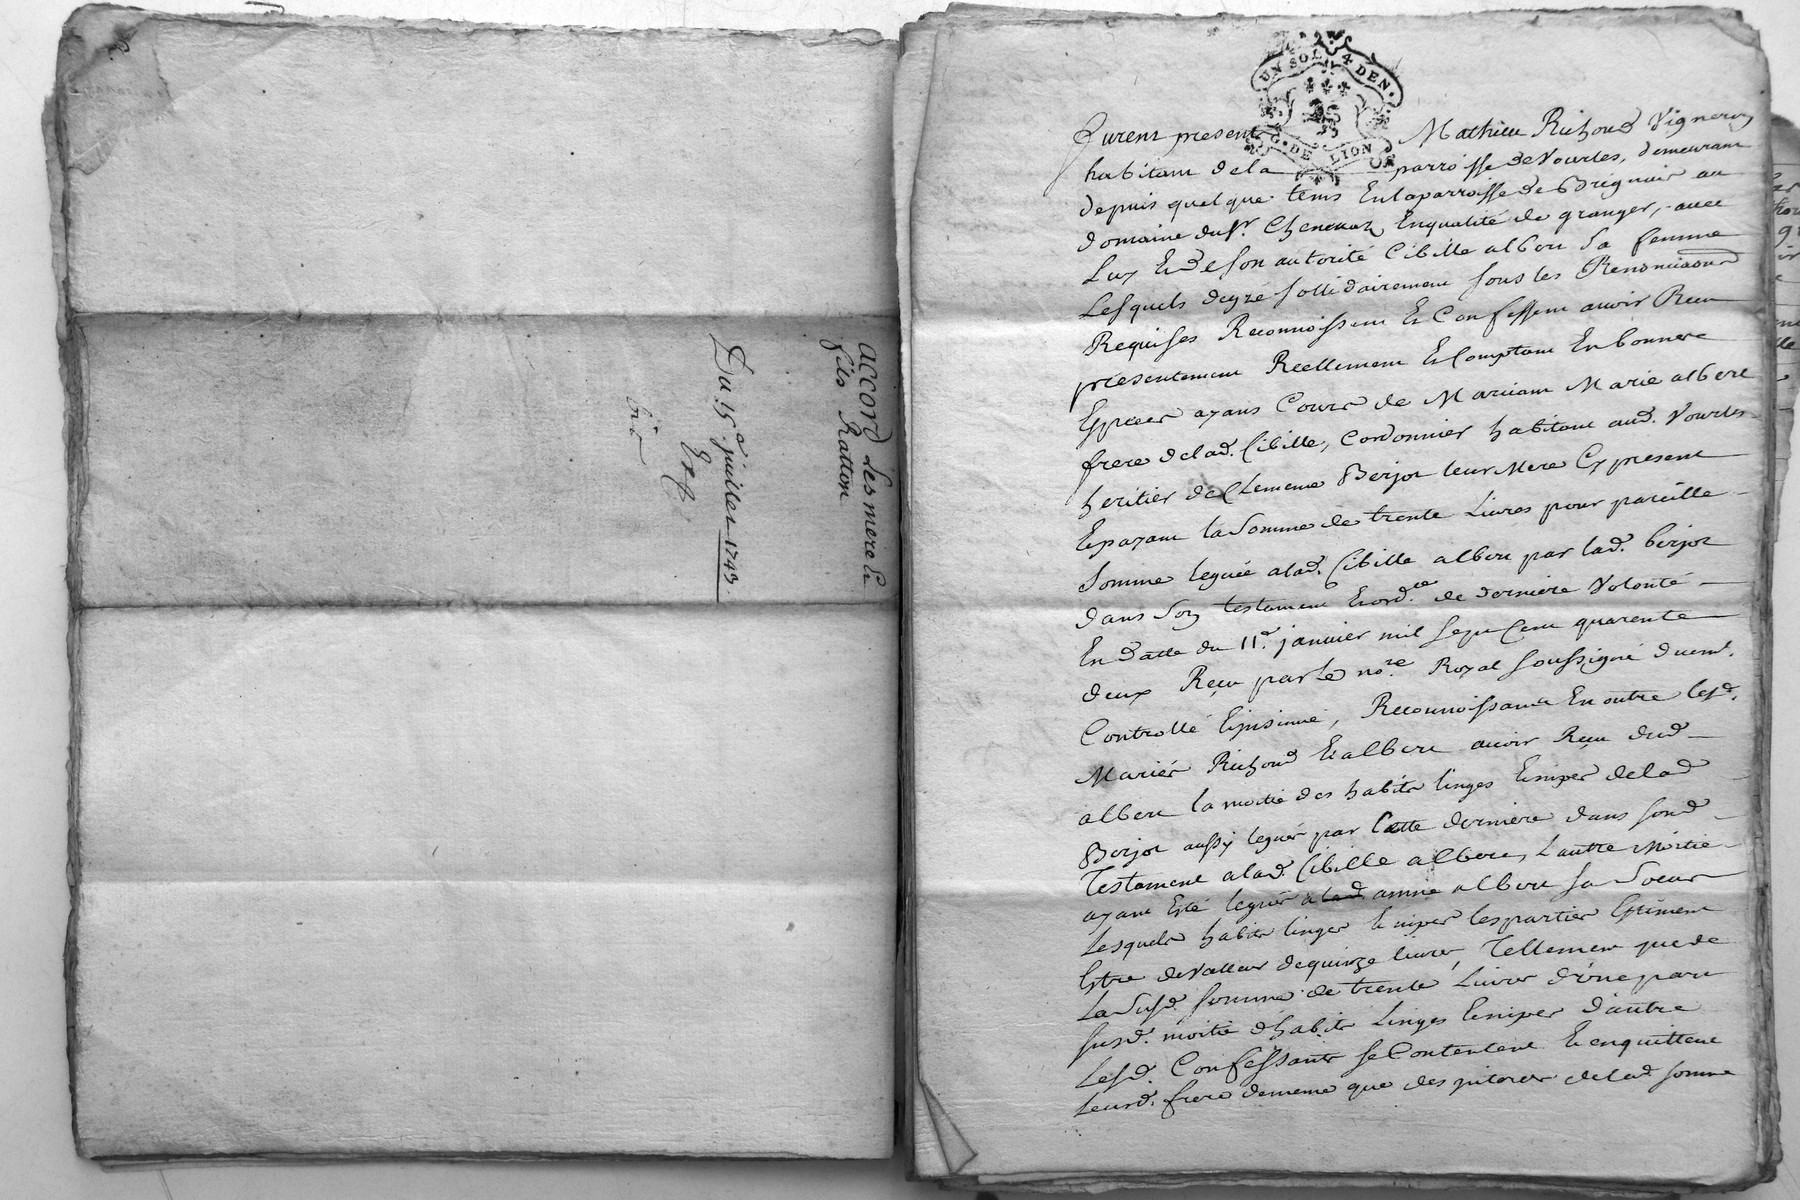 accord des mere &
fils Ratton
Du 15e juillet 1743.
Exp
UN SOL 4 DEN.
G. DE LION
furent present Mathieu Richoud Vigneron
habitant de la parroisse de Vourles, demeurant
depuis quelque tems En la parroisse de Brignais au
domaine du Sr. Chenevaz En qualité de granger, avec
Luy Et de Son autorité Cibille albert Sa femme
Lesquels de gré sollidairement sous les Renonciaons
Requises Reconnoissent Et Confessent avoir Receu
presentement Reellement Et Comptant En bonnes
Especes ayans Cours de Marie albert
frere de lad. Cibille, Cordonnier habitant aud. Vourles
heritier de Clemence Berjot leur Mere Cy present
Et payant la Somme de trente Livres pour pareille
Somme leguée a lad. Cibille albert par lad. berjot
dans Son testament Et ordce. de derniere Volonté
En datte du 11e. janvier mil Sept Cent quarente
deux Reçu par le nore. Royal soussigné duemt.
Controllé Et insinué, Reconnoissants En outre lesd.
Mariés Richoud Et albert avoir Reçu dud
albert la moitié des habits linges Et nipes de lad
Berjot aussy legués par Cette derniere dans sond
Testament a lad. Cibille albert, L'autre Moitié
ayant Esté legués a lad. anne albert sa Soeur
Lesquels habits linges Et nipes les parties Estiment
Estre de Valleur de quinze livres, Tellement que de
La Susd. somme de trente Livres d'une part
susd. moitié d'habits Linges Et nipes d'autre
Lesd. Confessants se Contentent Et en quittent
Leurd. frere de meme que des pretentions de lad somme